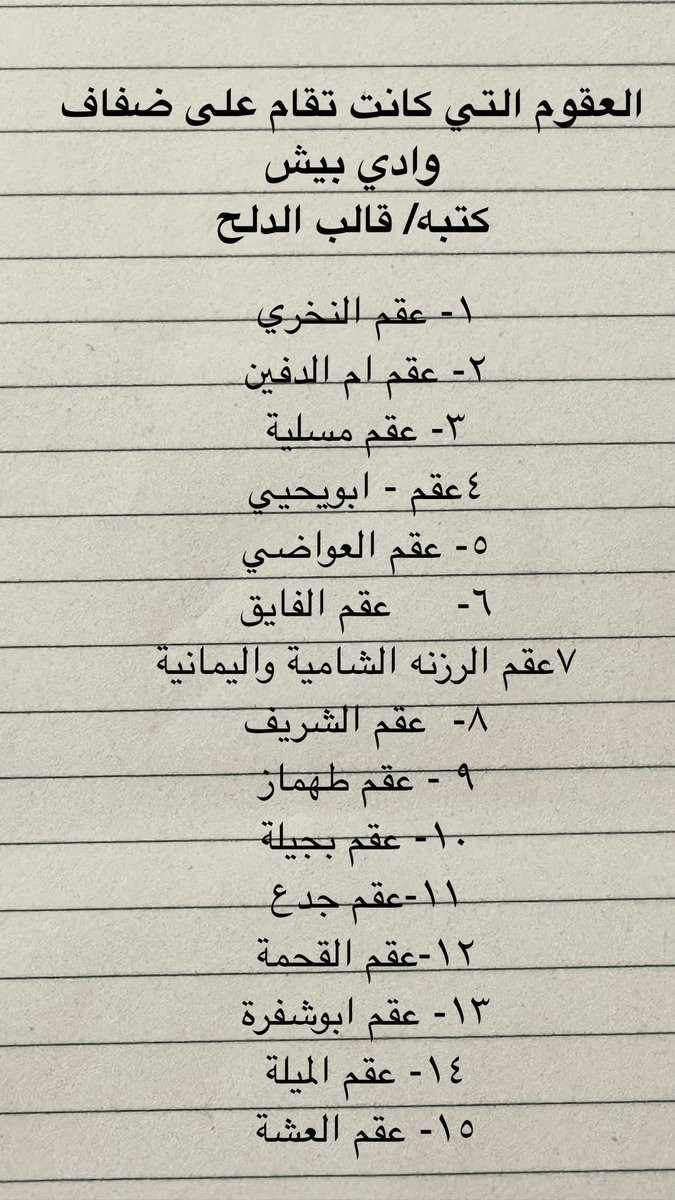 العقوم التي كانت تقام على ضفاف
وادي بيش
كتبه/ قالب الدلح
١- عقم النخري
٢- عقم ام الدفين
٣- عقم مسلية
٤عقم - ابويحيي
٥- عقم العواضي
٦- عقم الفايق
٧عقم الرزنه الشامية واليمانية
٨- عقم الشريف
٩ - عقم طهماز
١٠- عقم بجيلة
١١-عقم جدع
١٢-عقم القحمة
١٣- عقم ابوشفرة
١٤- عقم الميلة
١٥- عقم العشة